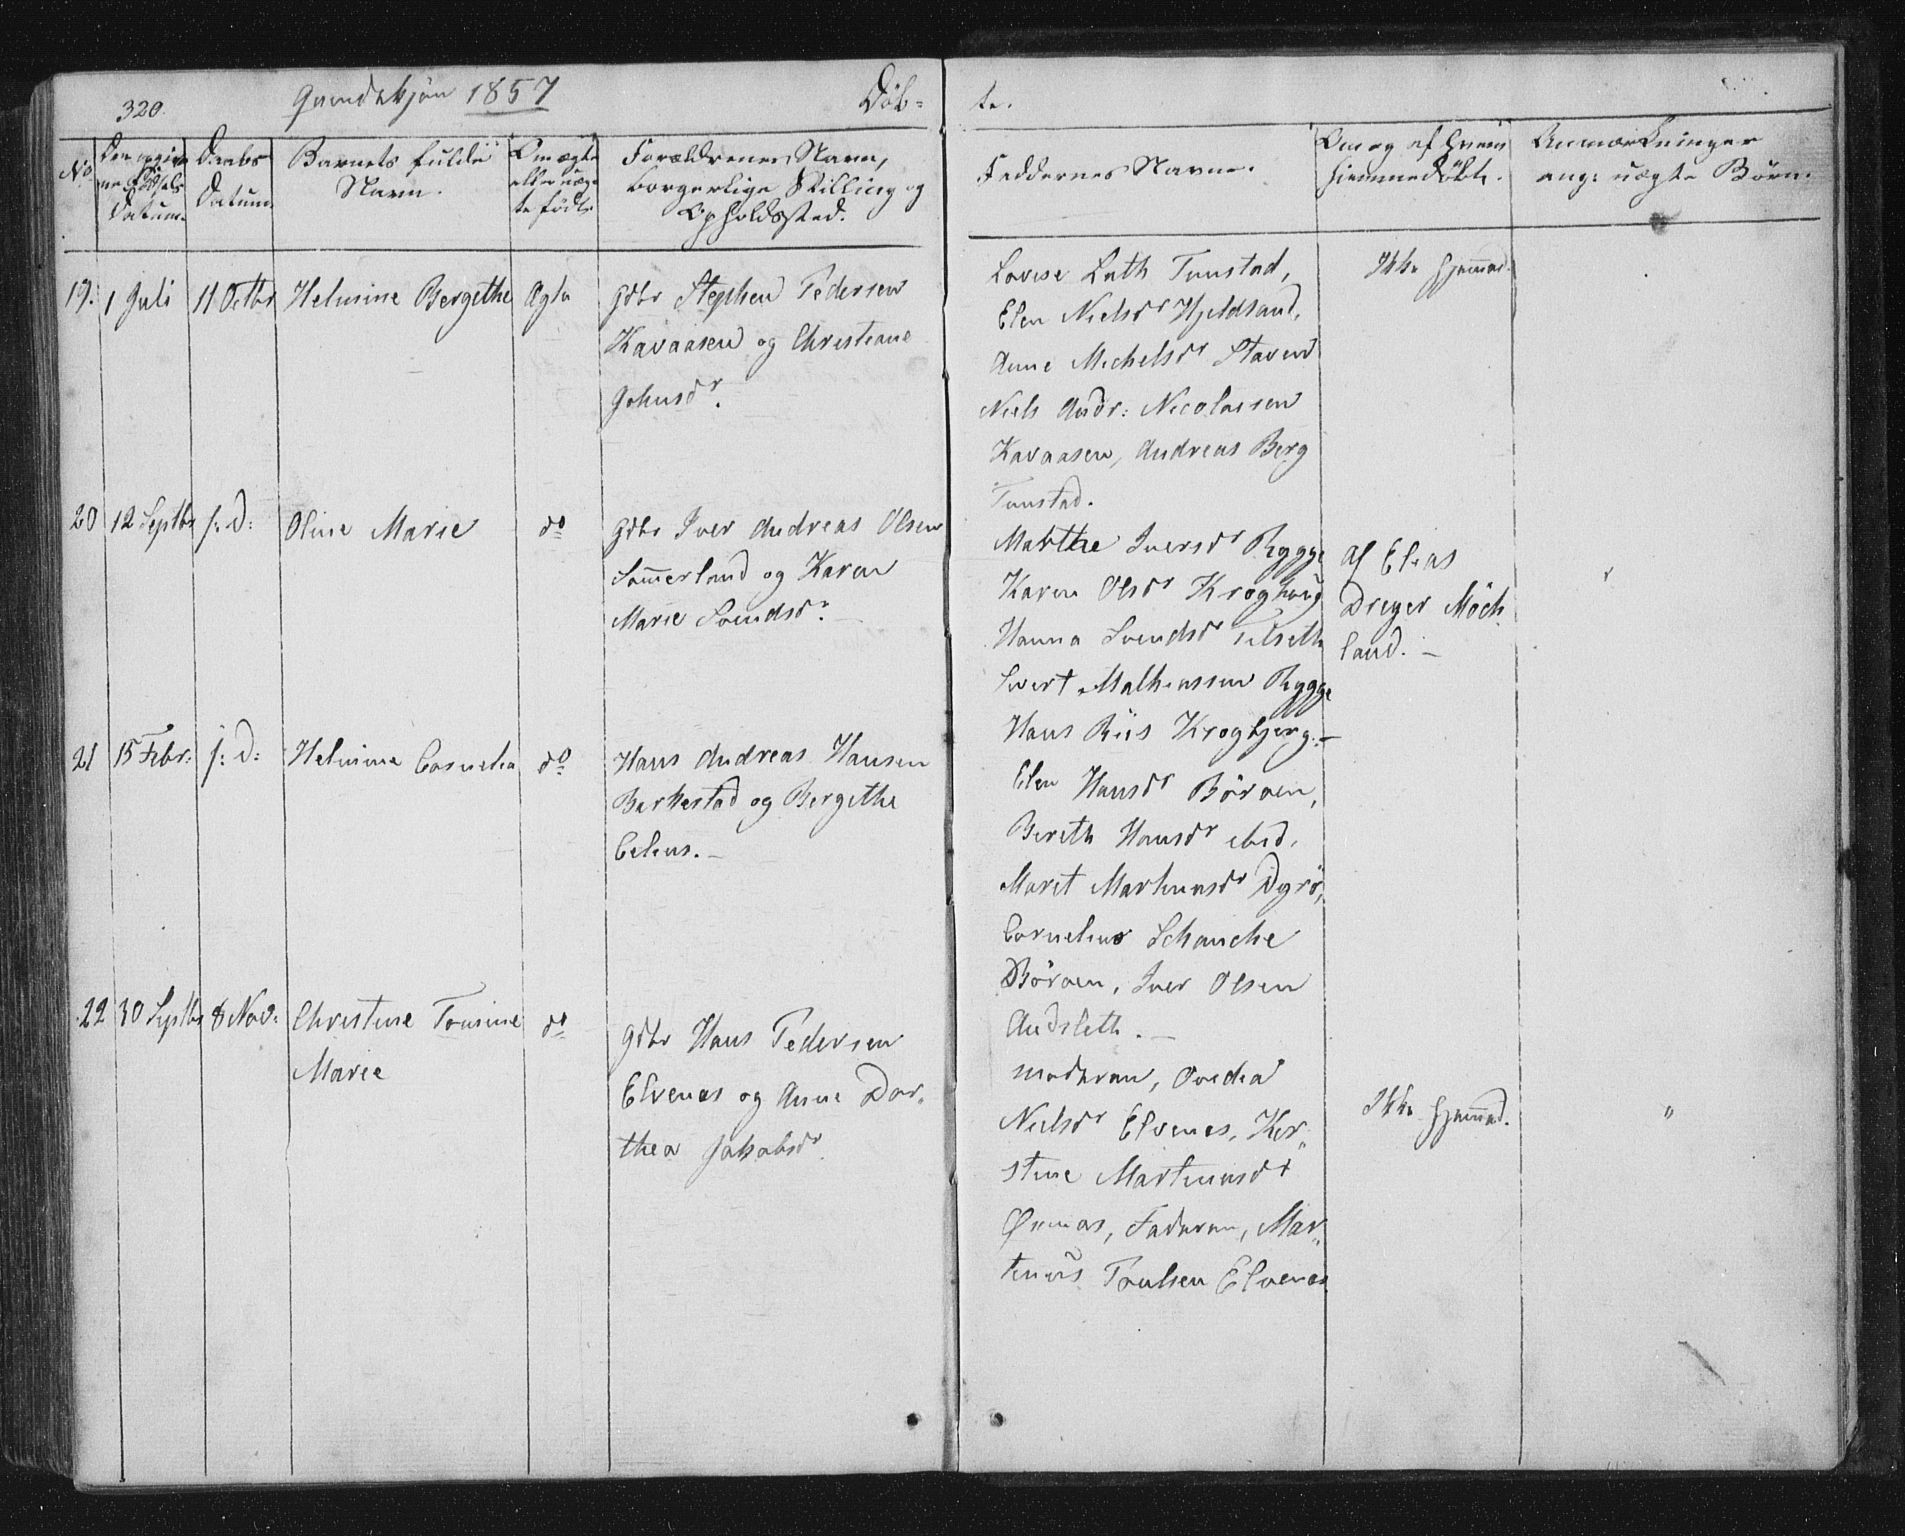 320.
Qvindekjøn 1857
Døb-
te.
No
Den opgiv-
ne Fødsels
Datum.
Daabs
Datum.
Barnets fulde
Navn.
Om ægte
eller uæg-
te født.
Forældrenes Navn,
borgerlige Stilling og
Opholdssted.
Faddernes Navne.
Om og af hvem
hjemmedøbt.
Anmærkninger
ang: uægte Børn.
19. 1 Juli 11 Octbr Helmine Bergethe Ægte
Gdbr Stephen Pedersen
Kavaasen og Christiane
Johnsdr.
Lovise Tunstad,
Elen Nielsdr Hjeldsand,
Anne Michelsdr Staven
Niels Andr: Nicolaisen
Kavaasen, Andreas Berg
Tunstad.
Ikke hjemmed.
20 12 Septbr s: D: Oline Marie do
Gdbr Iver Andreas Olsen
Sommerland og Karen
Marie Svendsdr. —
Marthe Iversdr Rygge
Karen Olsdr
Hanna Svendsdr
Sivert Mathiassen Rygge
Hans Riis Krogbjerg. —
af Elias
Dreyer Möck
land. —
21 15 Febr: s: D: Helmine Cornelia do
Hans Andreas Hansen
Barkestad og Bergithe
Celius. —
Elen Hansdr Böröen,
Bereth Hansdr ibid,
Marit Martinusdr Dyrö,
Cornelius Schanche
Böröen, Iver Olsen
Andsleth. —
22 30 Septbr 8 Nov: Christine Tomine do
Marie
Gdbr Hans Pedersen
Elvenes og Anne Dor-
thea Jakobsdr.
Moderen, Ovedia
Nielsdr Elvenes, Kir-
stine Martinusdr
Faderen, Mar-
tinus Poulsen Elvenes
Ikke hjemmed.
"